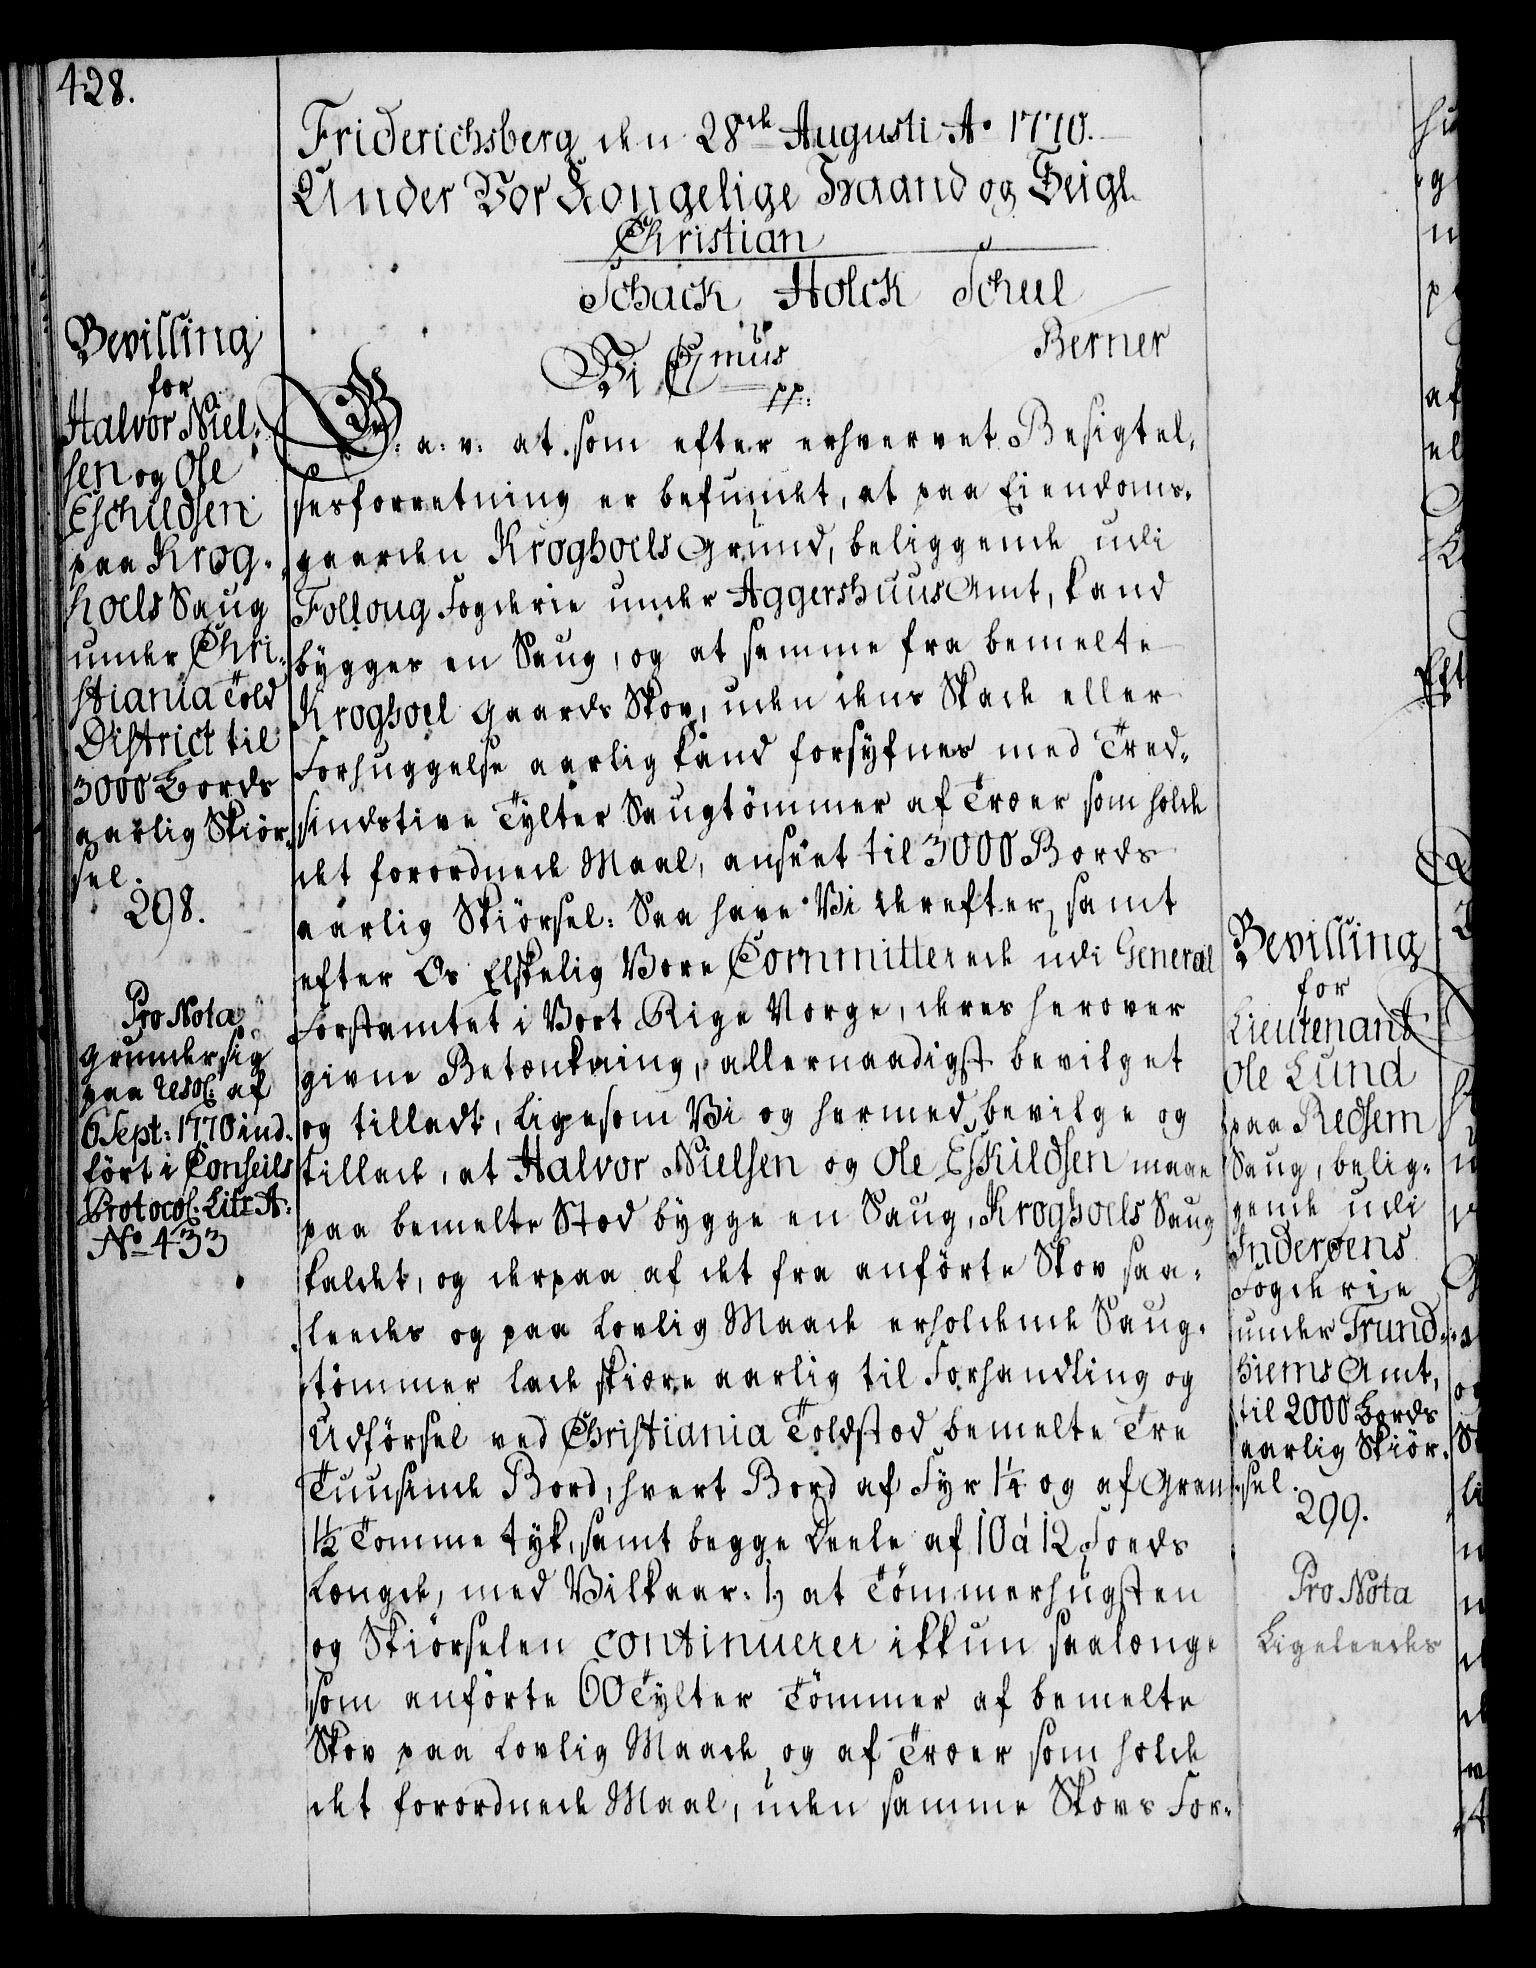 428.
Friderichsberg den 28de Augusti Ao 1770.
Under Vor Kongelige Haand og Seigl
Christian
Schack Holck Schul
Berner
Vi C 7mus
pp:
Bevilling
for
Halvor Niel-
sen og Ole
Eschildsen
paa Krog-
hoels Saug
under Chri-
stiania Told
District til
3000 Bords
aarlig Skiör-
sel.
298.
Pro Nota
grunder sig
paa Resol: af
6 Sept: 1770 ind-
fört i Conseils
Protocol: Litr A:
No 433
G: a: v: at som efter erhvervet Besigtel-
sesforretning er befundet, at paa Eiendoms-
gaarden Kroghoels Grund, beliggende udi
Folloug Fogderie under Aggershuus Amt, kand
bygges en Saug, og at samme fra bemelte
Kroghoel Gaards Skov, uden dens Skade eller
Forhuggelse aarlig kand forsyfnes med Tred-
sindstive Tylter Saugtömmer af Træer som holde
det forordnede Maal, anseet til 3000 Bords
aarlig Skiörsel: Saa have Vi derefter, samt
efter Os Elskelig Vore Committerede udi General
Forstamtet i Vort Rige Norge, deres herover
givne Betænkning, allernaadigst bevilget
og tilladt, ligesom Vi og hermed bevilge og
tillade, at Halvor Nielsen og Ole Eskildsen maae
paa bemelte Stæd bygge en Saug, Kroghoels Saug
kaldet, og derpaa af det fra anförte Skov saa-
leedes og paa Lovlig Maade erholdende Saug-
tömmer lade skiære aarlig til Forhandling og
Udförsel ved Christiania Toldstæd bemelte Tre
Tuusinde Bord, hvert Bord af Fyr 1¼ og af Gran
1½ Tomme tyk, samt begge Deele af 10 à 12 Foeds
Længde, med Vilkaar: 1) at Tömmerhugsten
og Skiörselen continuerer ikkun saalænge
som anförte 60 Tylter Tömmer af bemelte
Skov paa Lovlig Maade og af Træer som holde
det forordnede Maal, uden samme Skovs For-
Bevilling
for
Lieutenant
Ole Lund
paa Redsem
Saug, belig-
gende udi
Inderøens
Fogderie
under Trund-
hiems Amt,
til 2000 Bords
aarlig Skiör-
sel.
299.
Pro Nota
Ligeleedes